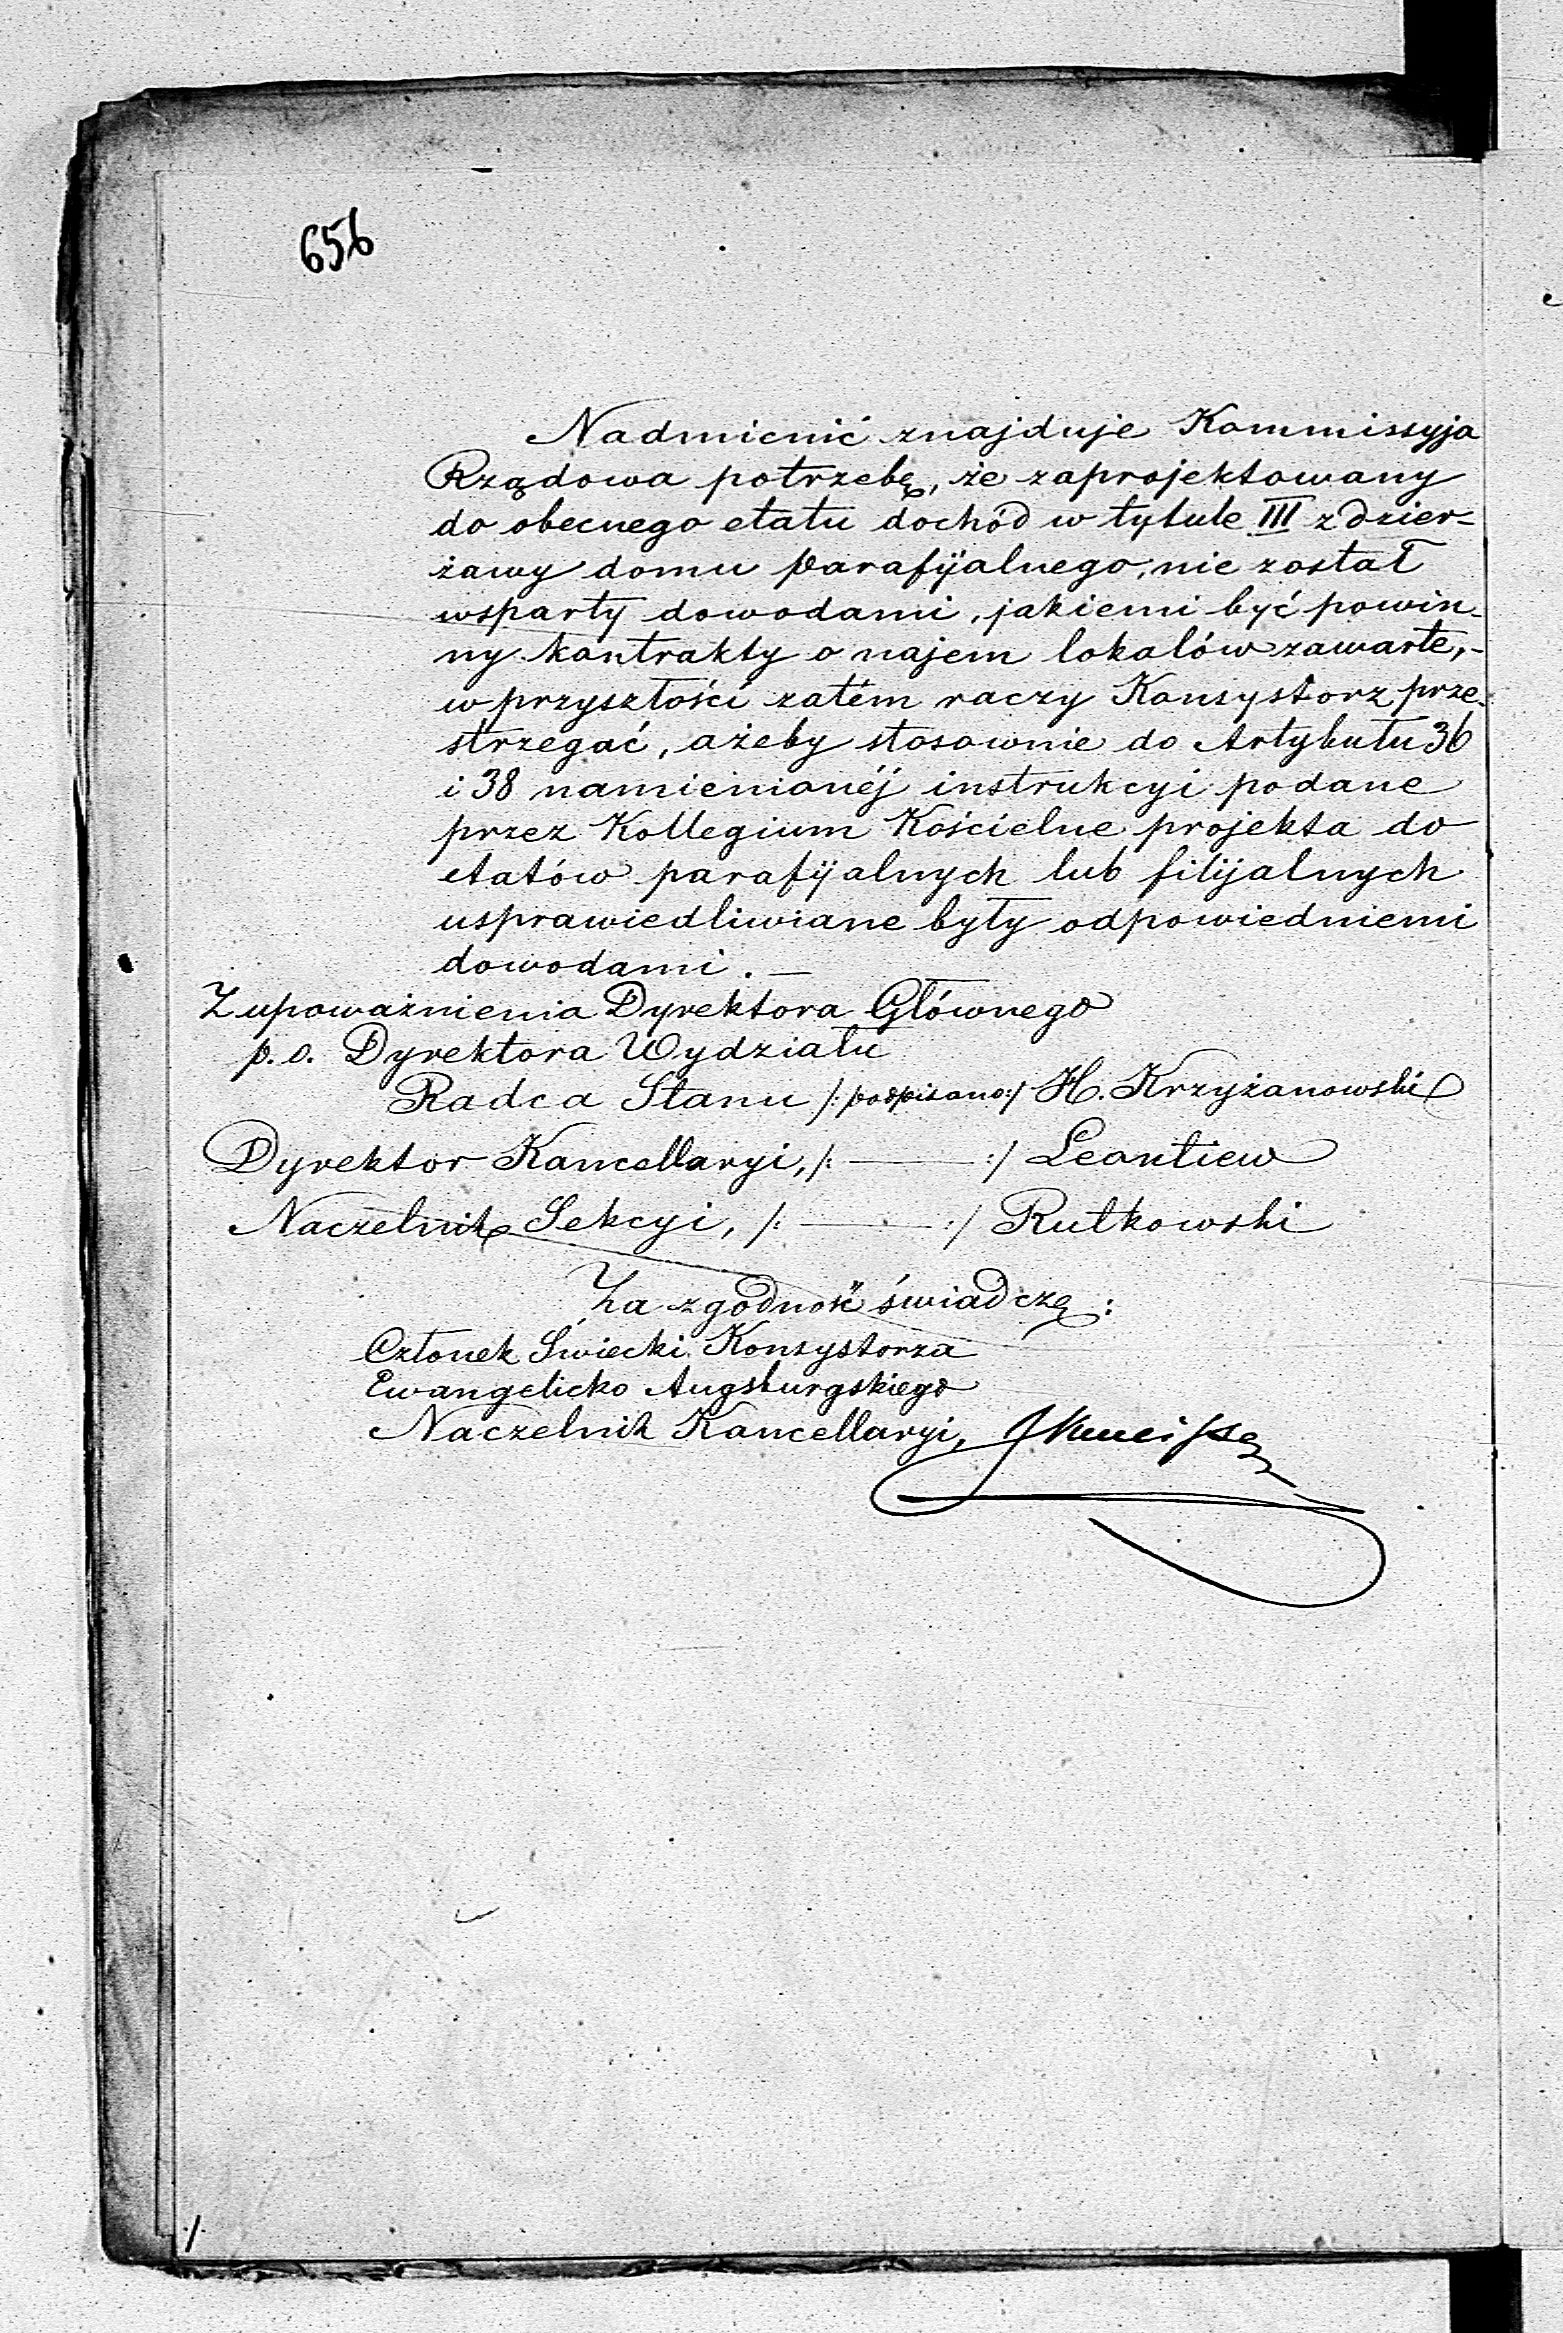 656
Nadmienić znajduje Kommissyja
Rządowa potrzebę, że zaprojektowany
do obecnego etatu dochód w tytule III z dzier-
żawy domu parafijalnego, nie został
wsparty dowodami, jakiemi być powin-
ny kontrakty o najem lokalów zawarte,-
w przyszłości zatém raczy Konsystorz prze-
strzegać, ażeby stosownie do Artykułu 36
i 38 namienionéj instrukcyi podane
przez Kollegium Kościelne projekta do
etatów parafijalnych lub filijalnych
usprawiedliwiane były odpowiedniemi
dowodami. —
Z upoważnienia Dyrektora Głównego
p.o. Dyrektora Wydziału
Radca Stanu /: podpisano :/ H. Krzyżanowski
Dyrektor Kancellaryi, /: —— :/ Leontiew
Naczelnik Sekcyi, /: —— :/ Rutkowski
Za zgodność świadczę:
Członek Świecki Konsystorza
Ewangelicko Augsburgskiego
Naczelnik Kancellaryi,